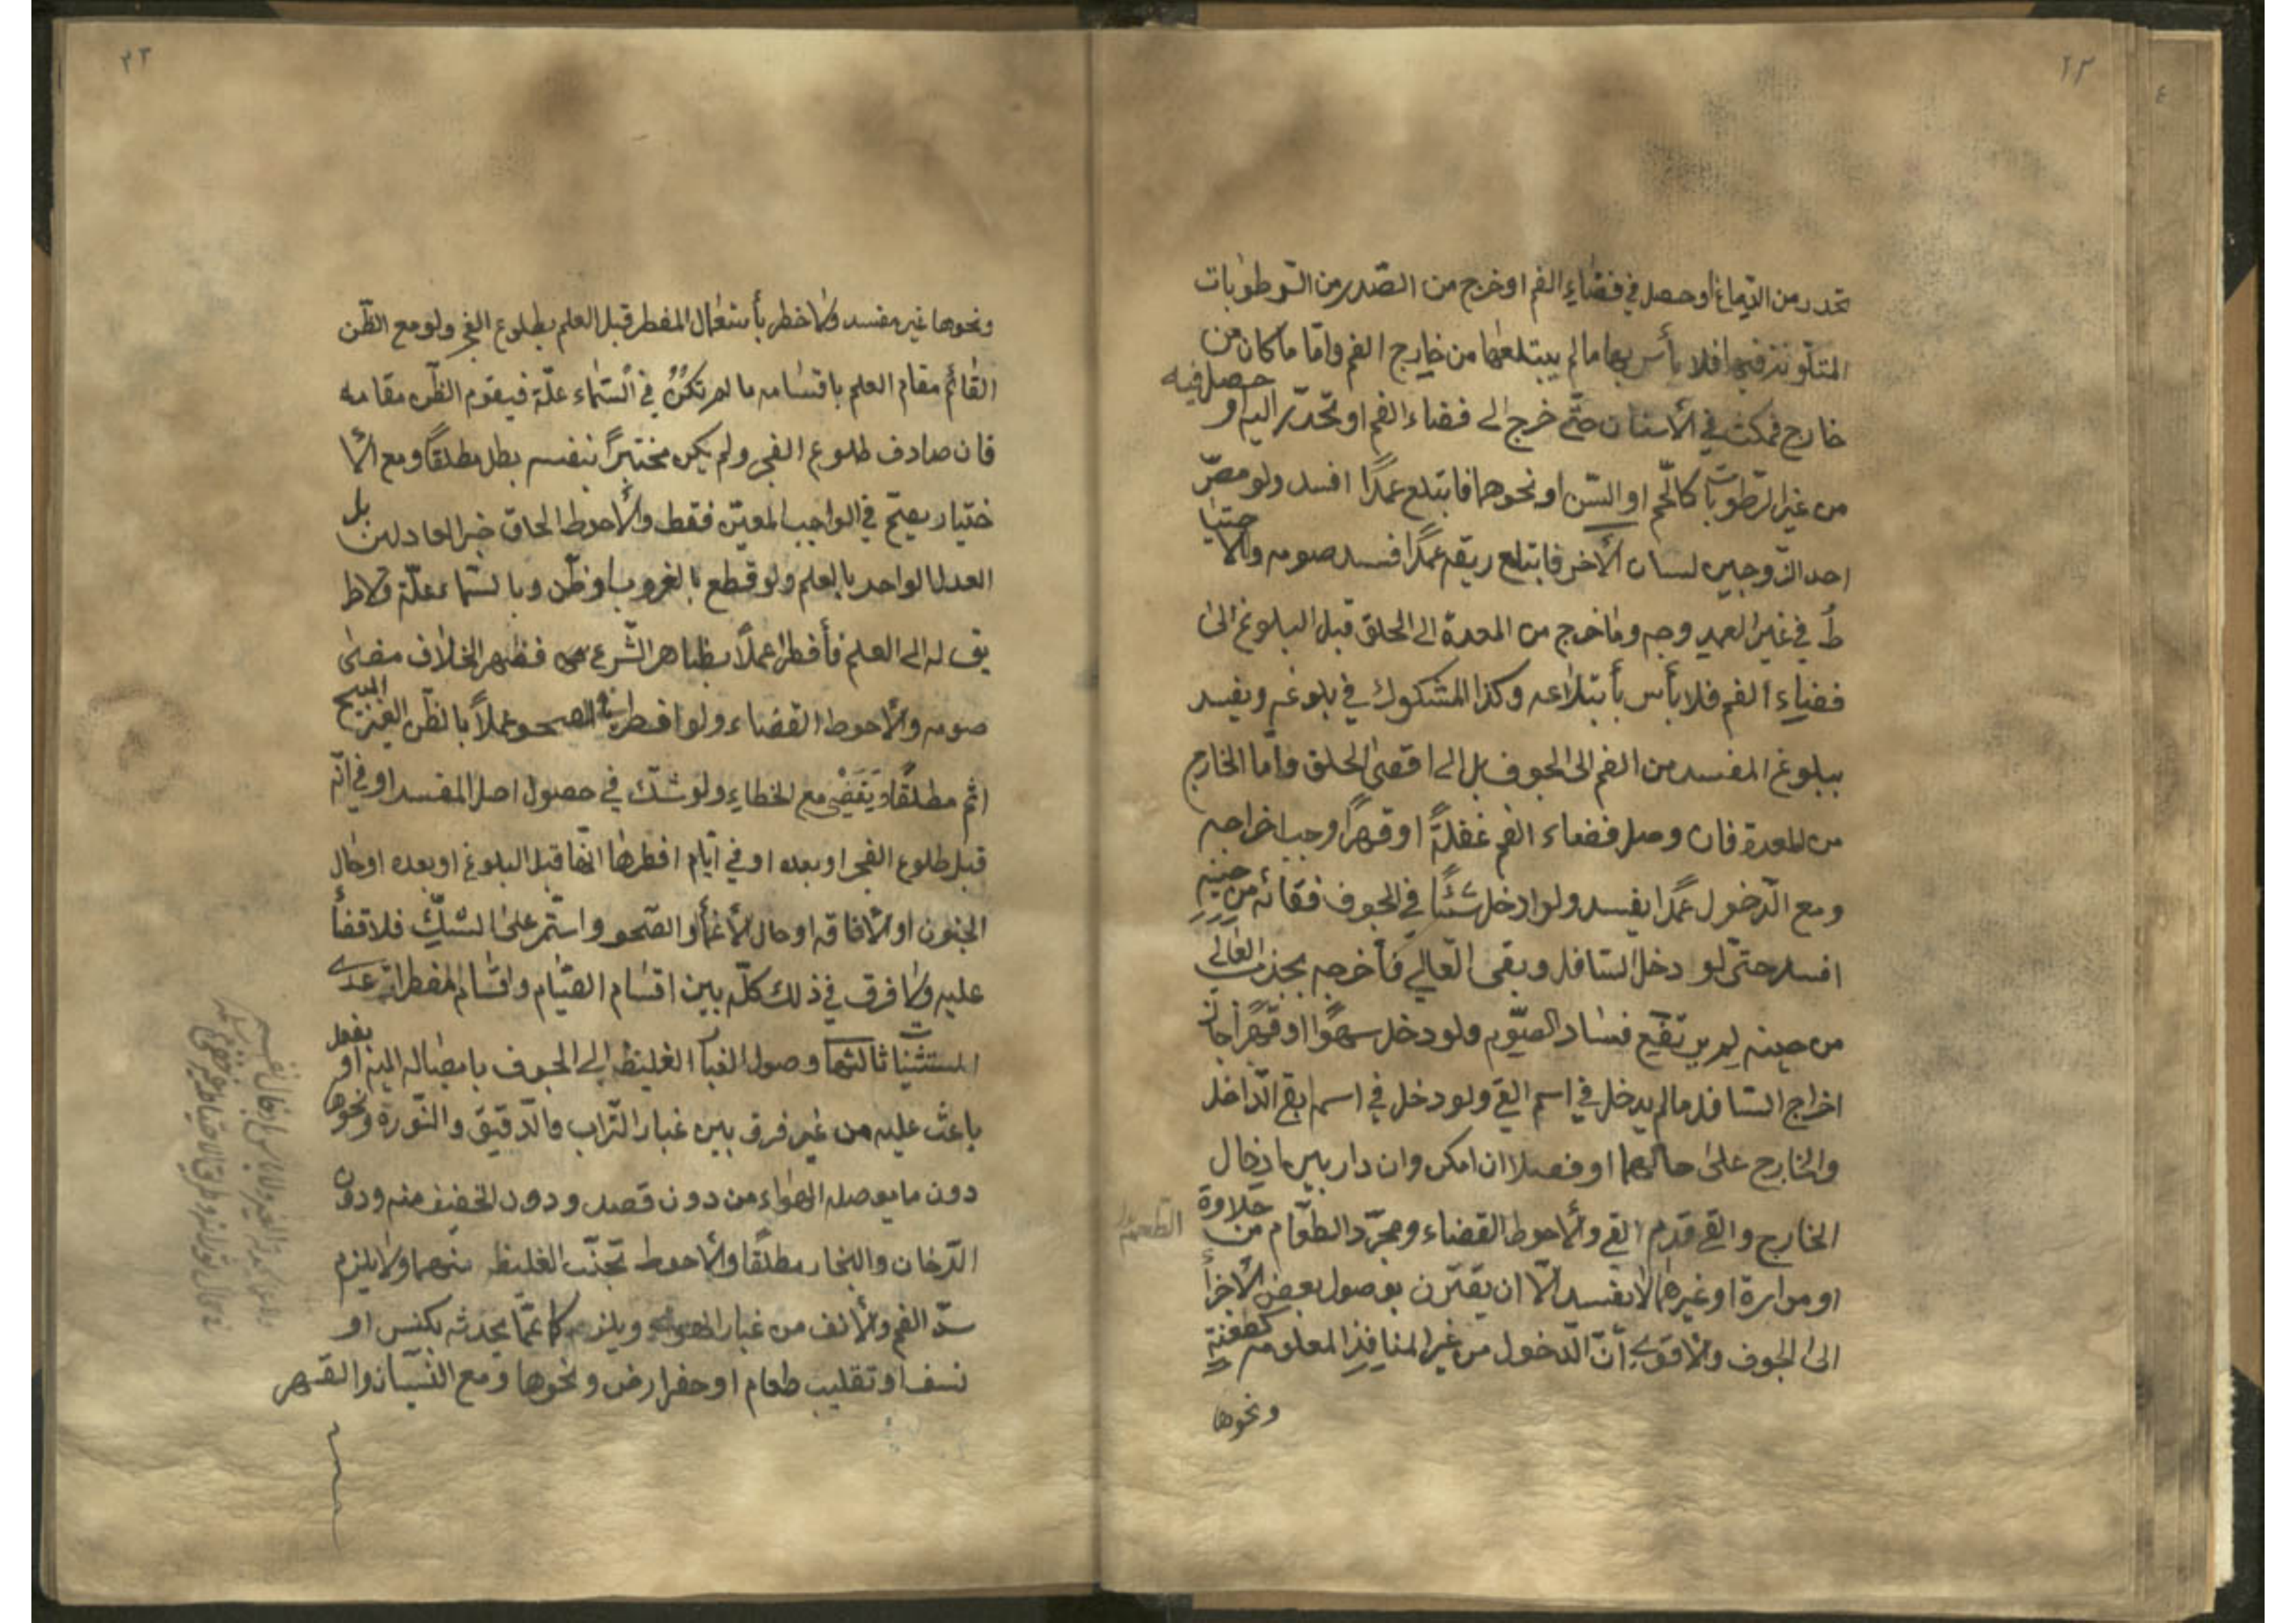 تحدر من الدماغ او حصل في فضاء الفم او خرج من الصّدر من الرّطوبات
المتكونة فيها فلا بأس بها ما لم يبتلعها من خارج الفم وامّا ما كان من
خارج فمكث في الأسنان حتّى خرج الى فضاء الفم او تحدّر اليه او حصل فيه
من غير الرّطوبات كاللّحم او السّن او نحوهما فابتلع عمدًا افسد ولو مصّ
احد الزّوجين لسان الأخر فابتلع ريقه عمدًا فسد صومه والأحتيا
طُ في غير العمد وجه وما خرج من المعدة الى الحلق قبل البلوغ الى
فضاء الفم فلا بأس بأبتلاعه وكذا المشكوك في بلوغه ويفسد
ببلوغ المفسد من الفم الى الجوف بل الى اقصى الحلق وامّا الخارج
من المعدة فان وصل فضاء الفم غفلةً او قهرًا وجب اخراجه
ومع الدّخول عمدًا يفسد ولو ادخل شيئًا في الجوف فقائه من حينه
افسد حتى لو دخل السّافل وبقى العالي فأخرجه بجذب العالي
من حينه لم يرتفع فساد الصّوم ولو دخل سهوًا او قهرًا جاز
اخراج السّافل ما لم يدخل في اسم القئ ولو دخل في اسمه ابقى الدّاخل
والخارج على حالهما او فصلا ان امكن وان دار بين ادخال
الخارج والقئ قدم القئ والأحوط القضاء ومجرّد الطّعام من حلاوة
الطعم
او مرارة او غيرهما لا يفسد الّا ان يقترن بوصول بعض الأجزأ
الى الجوف والأقوى انّ الدّخول من غير المنافذ المعلومة كطعنة
ونحوها
ونحوها غير مفسد ولا خطر بأستعمال المفطر قبل العلم بطلوع الفجر ولو مع الظّن
القائم مقام العلم باقسامه ما لم تكنُ في السّماء علّة فيقوم الظّن مقامه
فان صادف طلوع الفجر ولم يكن مختبرًا بنفسه بطل مطلقًا ومع الأ
ختيار يصحّ في الواجب المعيّن فقط والأحوط الحاق خبر العادلين بل
العدل الواحد بالعلم ولو قطع بالغروب او ظّن وبالسّماء علّة ولا طر
يق له الى العلم فأفطر عملًا بظاهر الشّرع فظهر الخلاف مضى
صومه والأحوط القضاء ولو افطر في الصحو عملًا بالظّن الغير المبيح
اثم مطلقًا ويقضى مع الخطاء ولو شّك في حصول اصل المفسد او في انّه
قبل طلوع الفجر او بعده او في ايّام افطرها انّها قبل البلوغ او بعده او حال
الجنون او الأفاقه او حال الأغمأ او الصّحو واستّمر على الشّكّ فلا قضأ
عليه ولا فرق في ذلك كلّه بين اقسام الصّيام واقسام المفطرات عدى
المستثنيات ثالثها وصول الغبار الغليظ الى الجوف بايصاله اليه او بفعل
باعث عليه من غير فرق بين غبار التّراب والدّقيق والنّورة ونحوها
دون ما يوصله الهواء من دون قصد ودون الخفيف منه ودون
الدّخان والبخار مطلقًا والأحوط تجنّب الغليظ منهما ولا يلزم
سدّ الفم والأنف من غبار الهواء ويلزم عمّا يحدثه بكنس او
نسف او تقليب طعام او حفر ارض ونحوها ومع النّسيان والقهر